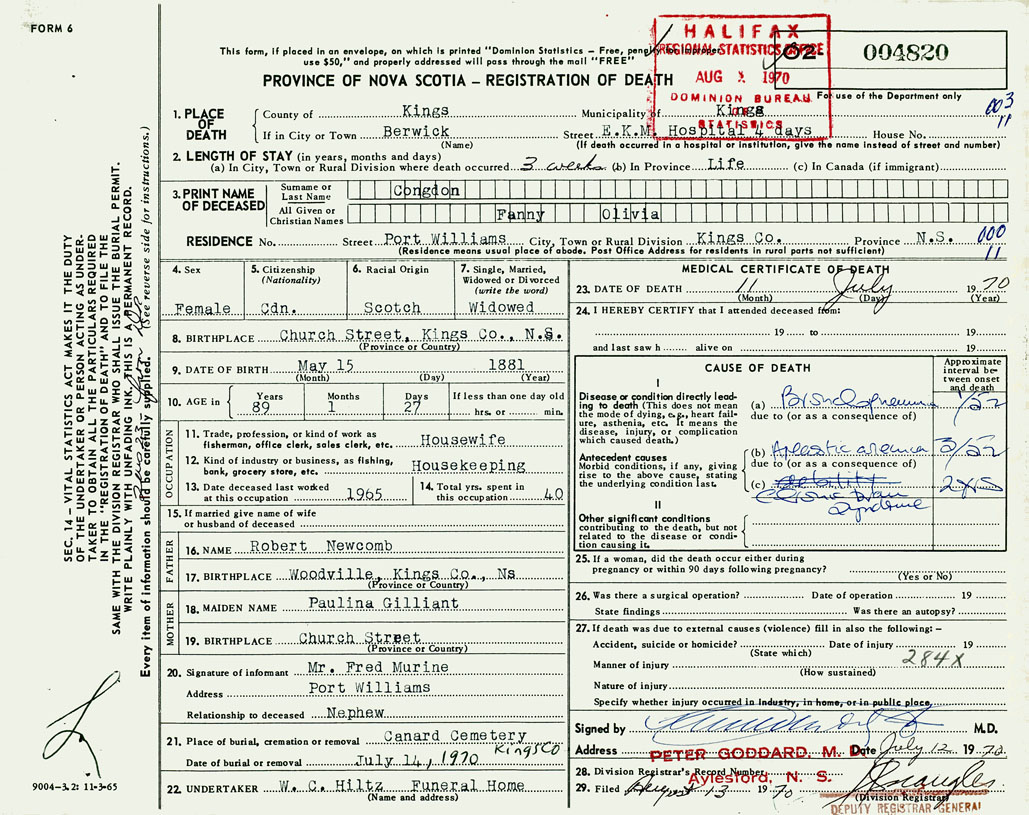 FORM 6
This form, if placed in an envelope, on which is printed "Dominion Statistics – Free, penalty for improper
use $50," and properly addressed will pass through the mail "FREE"
PROVINCE OF NOVA SCOTIA – REGISTRATION OF DEATH
HALIFAX
REGIONAL STATISTICS OFFICE
AUG 1970
DOMINION BUREAU
STATISTICS
62- 004820
For use of the Department only
003
11
1. PLACE OF DEATH
County of Kings Municipality of Kings
If in City or Town Berwick Street E.K.M. Hospital 4 days House No.
(Name) (If death occurred in a hospital or institution, give the name instead of street and number)
2. LENGTH OF STAY (in years, months and days)
(a) In City, Town or Rural Division where death occurred 3 weeks (b) In Province Life (c) In Canada (if immigrant)
3. PRINT NAME OF DECEASED
Surname or Last Name Congdon
All Given or Christian Names Fanny Olivia
RESIDENCE No. Street Port Williams City, Town or Rural Division Kings Co. Province N.S.
000
11
(Residence means usual place of abode. Post Office Address for residents in rural parts not sufficient)
4. Sex Female
5. Citizenship (Nationality) Cdn.
6. Racial Origin Scotch
7. Single, Married, Widowed or Divorced (write the word) Widowed
8. BIRTHPLACE Church Street, Kings Co., N.S.
(Province or Country)
9. DATE OF BIRTH May 15 1881
(Month) (Day) (Year)
10. AGE in Years 89 Months 1 Days 27 If less than one day old hrs. or min.
OCCUPATION
11. Trade, profession, or kind of work as fisherman, office clerk, sales clerk, etc. Housewife
12. Kind of industry or business, as fishing, bank, grocery store, etc. Housekeeping
13. Date deceased last worked at this occupation 1965
14. Total yrs. spent in this occupation 40
15. If married give name of wife or husband of deceased
FATHER
16. NAME Robert Newcomb
17. BIRTHPLACE Woodville, Kings Co., Ns
(Province or Country)
MOTHER
18. MAIDEN NAME Paulina Gilliant
19. BIRTHPLACE Church Street
(Province or Country)
20. Signature of informant Mr. Fred Murine
Address Port Williams
Relationship to deceased Nephew
21. Place of burial, cremation or removal Canard Cemetery
Kings Co
Date of burial or removal July 14, 1970
22. UNDERTAKER W. C. Hiltz Funeral Home
(Name and address)
MEDICAL CERTIFICATE OF DEATH
23. DATE OF DEATH 11 July 1970
(Month) (Day) (Year)
24. I HEREBY CERTIFY that I attended deceased from:
19 to 19
and last saw h alive on 19
CAUSE OF DEATH
Approximate interval between onset and death
I
Disease or condition directly leading to death (This does not mean the mode of dying, e.g., heart failure, asthenia, etc. It means the disease, injury, or complication which caused death.)
(a) Bronchopneumonia 1/52
due to (or as a consequence of)
Antecedent causes
Morbid conditions, if any, giving rise to the above cause, stating the underlying condition last.
(b) Aplastic anemia 3/52
due to (or as a consequence of)
(c) Chronic Brain Syndrome 2 yrs
II
Other significant conditions contributing to the death, but not related to the disease or condition causing it.
25. If a woman, did the death occur either during pregnancy or within 90 days following pregnancy?
(Yes or No)
26. Was there a surgical operation? Date of operation 19
State findings Was there an autopsy?
27. If death was due to external causes (violence) fill in also the following: –
Accident, suicide or homicide? Date of injury 19
(State which) 284X
Manner of injury
(How sustained)
Nature of injury
Specify whether injury occurred in industry, in home, or in public place
Signed by M.D.
Address PETER GODDARD, M. D. Date July 12 1970
Aylesford, N. S.
28. Division Registrar's Record Number
29. Filed August 13 1970
(Division Registrar)
DEPUTY REGISTRAR GENERAL
SEC. 14 – VITAL STATISTICS ACT MAKES IT THE DUTY
OF THE UNDERTAKER OR PERSON ACTING AS UNDER-
TAKER TO OBTAIN ALL THE PARTICULARS REQUIRED
IN THE "REGISTRATION OF DEATH" AND TO FILE THE
SAME WITH THE DIVISION REGISTRAR WHO SHALL ISSUE THE BURIAL PERMIT.
WRITE PLAINLY WITH UNFADING INK. THIS IS A PERMANENT RECORD.
Every item of information should be carefully supplied. (See reverse side for instructions.)
9004-3.2: 11-3-65